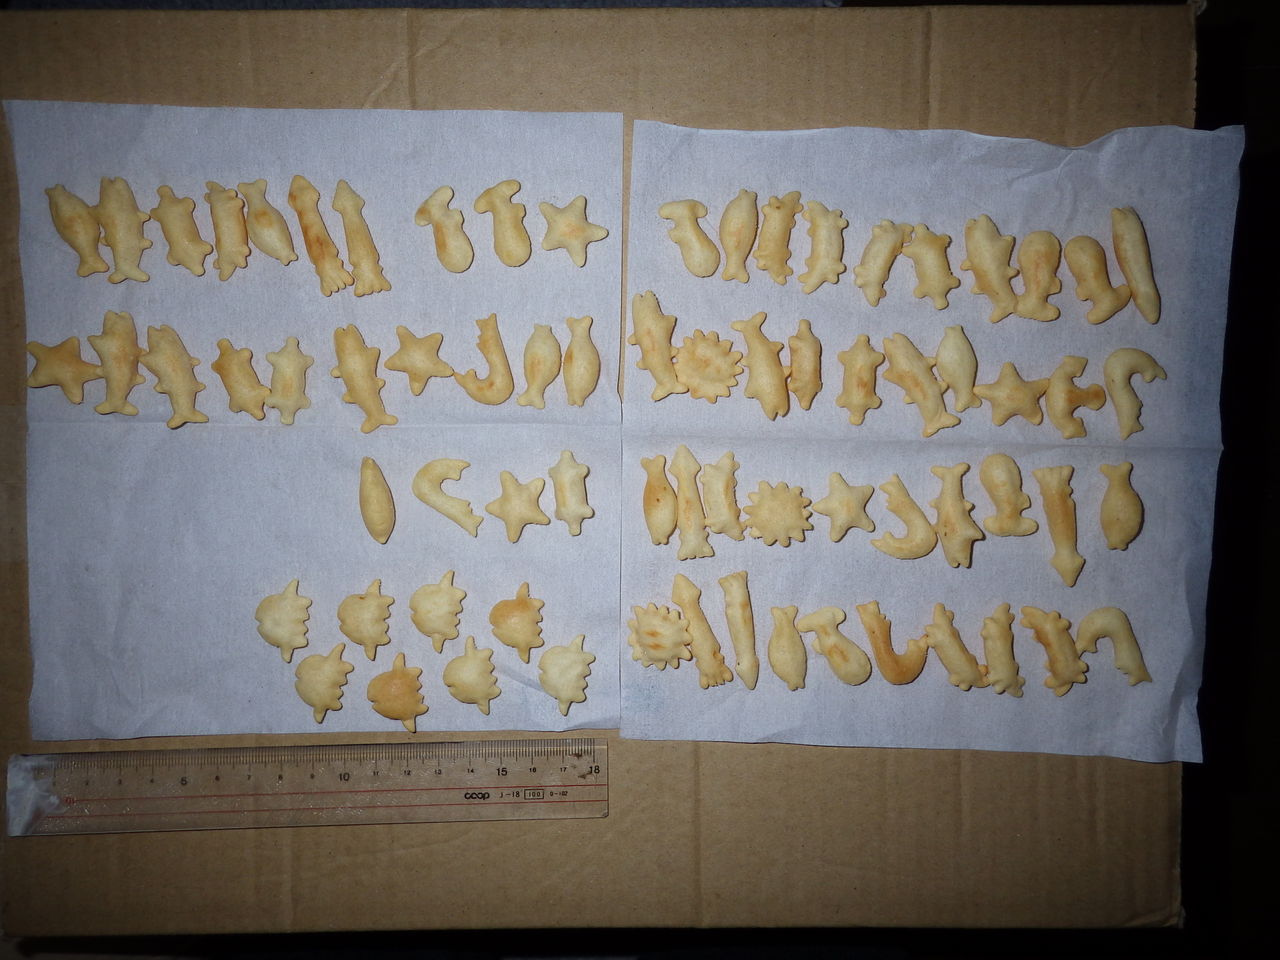 2 3 4 5 6 7 8 9 10 11 12 13 14 15 16 17 18
coop J-18 100 0-102